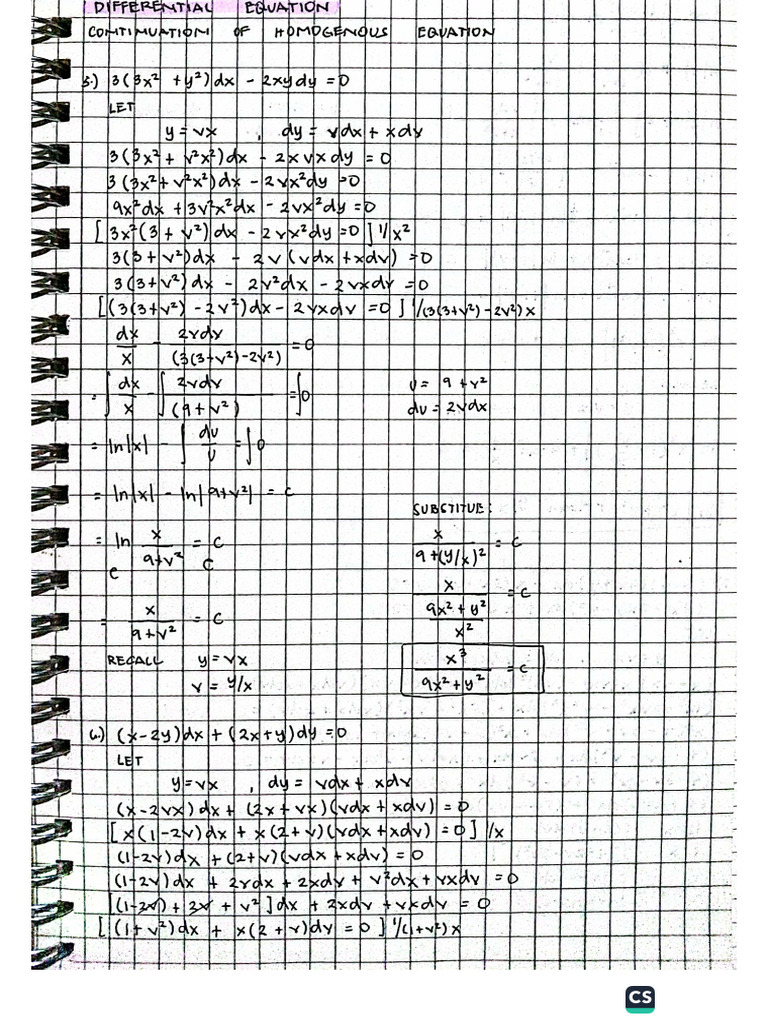 DIFFERENTIAL EQUATION
CONTINUATION OF HOMOGENOUS EQUATION
5.) 3(3x² + y²)dx - 2xydy = 0
LET
y = vx , dy = vdx + xdv
3(3x² + v²x²)dx - 2xvxdy = 0
3(3x² + v²x²)dx - 2vx²dy = 0
9x²dx + 3v²x²dx - 2vx²dy = 0
[3x²(3 + v²)dx - 2vx²dy = 0] 1/x²
3(3 + v²)dx - 2v(vdx + xdv) = 0
3(3+v²)dx - 2v²dx - 2vxdv = 0
[(3(3+v²) - 2v²)dx - 2vxdv = 0] 1/(3(3+v²) - 2v²)x
dx/x - 2vdv/(3(3+v²)-2v²) = 0
= ∫ dx/x - ∫ 2vdv/(9+v²) = ∫0
u = 9 + v²
du = 2vdx
= ln|x| - ∫ du/u = ∫0
= ln|x| - ln|9+v²| = c
= ln x/9+v² = c
e e
= x/9+v² = c
RECALL y = vx
v = y/x
SUBSTITUE:
x/9+(y/x)² = c
x/(9x² + y²/x²) = c
x³/9x² + y² = c
6.) (x-2y)dx + (2x+y)dy = 0
LET
y = vx , dy = vdx + xdv
(x-2vx)dx + (2x + vx)(vdx + xdv) = 0
[x(1-2v)dx + x(2+v)(vdx + xdv) = 0] 1/x
(1-2v)dx + (2+v)(vdx + xdv) = 0
(1-2v)dx + 2vdx + 2xdv + v²dx + vxdv = 0
[(1-2v) + 2v + v²]dx + 2xdv + vxdv = 0
[(1+v²)dx + x(2+v)dv = 0] 1/(1+v²)x
CS